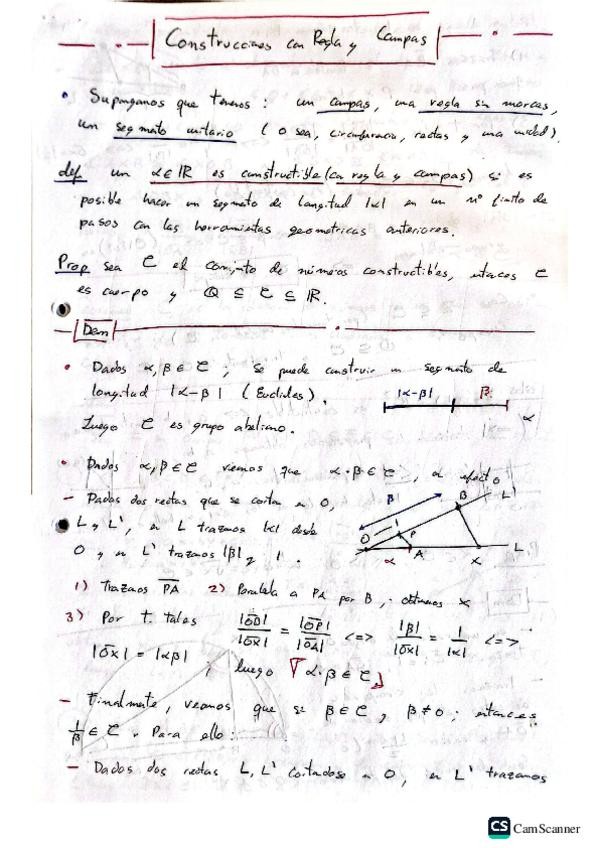 Construcciones con Regla y Compas
• Supongamos que tenemos : un compas, una regla sin marcas,
un segmento unitario ( o sea, circunferencia, rectas y una unidad).
def un α∈ℝ es constructible (con regla y compas) si es
posible hacer un segmento de longitud |α| en un nº finito de
pasos con las herramientas geometricas anteriores.
Prop sea C el conjunto de números constructibles, entonces C
es cuerpo y ℚ ⊆ C ⊆ ℝ.
Dem
• Dados α,β∈C ; se puede construir un segmento de
longitud |α-β| (Euclides).
|α-β| β
α
Luego C es grupo abeliano.
• Dados α,β∈C veamos que α·β∈C, a efecto
- Dados dos rectas que se cortan en O,
L y L', en L trazamos |α| desde
O y en L' trazamos |β| y 1.
β B L'
O 1 P
α A X L
1) Trazamos PA 2) Paralela a PA por B, obtenemos X
3) Por t. tales |OB|/|OX| = |OP|/|OA| <=> |β|/|OX| = 1/|α| <=>
|OX| = |αβ| ; luego α·β∈C
- Finalmente, veamos que si β∈C, β≠0; entonces
1/β ∈ C. Para ello:
- Dados dos rectas L, L' cortandose en O, en L' trazamos
CS CamScanner